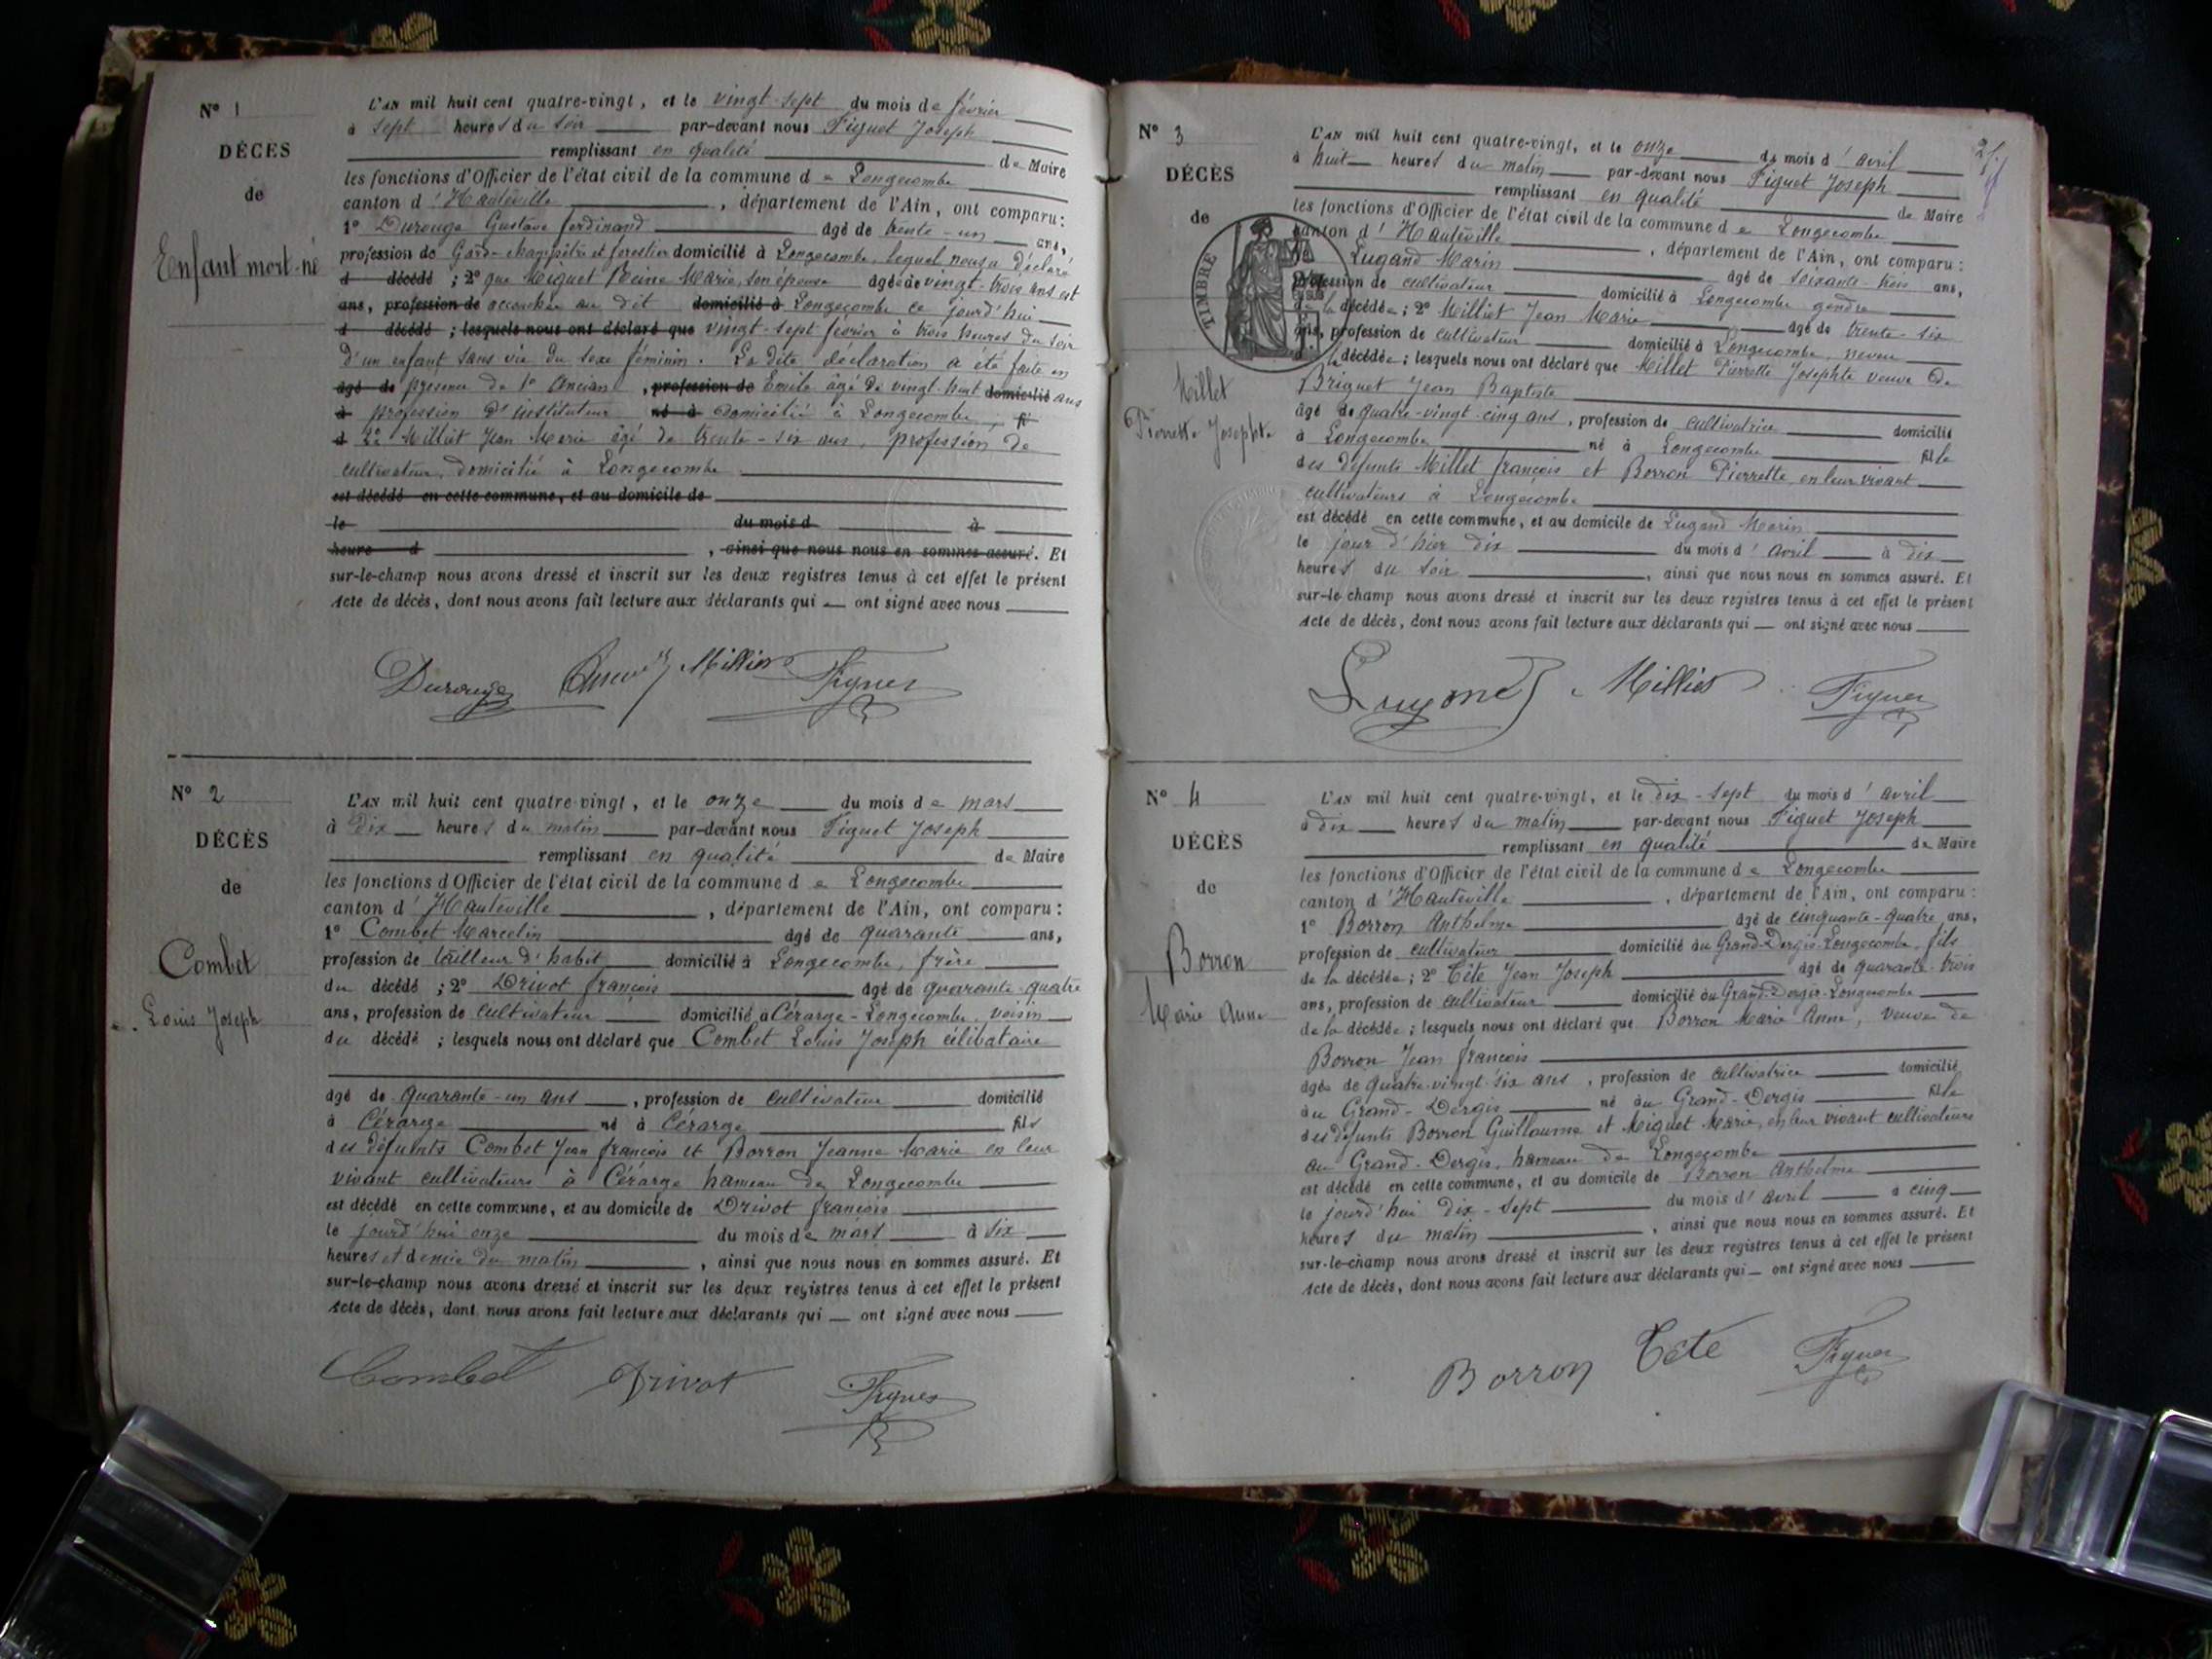 N° 1
DÉCÈS
de
Enfant mort-né
L'AN mil huit cent quatre-vingt, et le vingt-sept du mois de février
à sept heures du soir par-devant nous Figuet Joseph
remplissant en qualité de Maire
les fonctions d'Officier de l'état civil de la commune de Longecombe
canton d'Hauteville, département de l'Ain, ont comparu:
1° Durouge Gustave Ferdinand âgé de trente-un ans,
profession de Garde-champêtre et forestier domicilié à Longecombe, lequel nous a déclaré
d décédé ; 2° que Miguet Reine Marie, son épouse âgée de vingt-trois ans est
ans, profession de accouchée au dit domicilié à Longecombe ce jourd'hui
d décédé ; lesquels nous ont déclaré que vingt-sept février à trois heures du soir
d'un enfant sans vie du sexe féminin. La dite déclaration a été faite en
âgé de présence de 1° Ancian, profession de Emile âgé de vingt-huit domicilié ans
à profession d'instituteur né à domicilié à Longecombe, fi
d 2° Milliet Jean Marie âgé de trente-six ans, profession de
cultivateur, domicilié à Longecombe
est décédé en cette commune, et au domicile de
le du mois d à
heure d, ainsi que nous nous en sommes assuré. Et
sur-le-champ nous avons dressé et inscrit sur les deux registres tenus à cet effet le présent
Acte de décès, dont nous avons fait lecture aux déclarants qui — ont signé avec nous
Durouge Milliet Figuet
N° 2
DÉCÈS
de
Combet
Louis Joseph
L'AN mil huit cent quatre-vingt, et le onze du mois de mars
à dix heures du matin par-devant nous Figuet Joseph
remplissant en qualité de Maire
les fonctions d'Officier de l'état civil de la commune de Longecombe
canton d'Hauteville, département de l'Ain, ont comparu:
1° Combet Marcelin âgé de quarante ans,
profession de tailleur d'habit domicilié à Longecombe, frère
du décédé ; 2° Drivot François âgé de quarante-quatre
ans, profession de cultivateur domicilié à Cérarge-Longecombe, voisin
du décédé ; lesquels nous ont déclaré que Combet Louis Joseph célibataire
âgé de quarante-un ans, profession de cultivateur domicilié
à Cérarge né à Cérarge fils
des défunts Combet Jean François et Borron Jeanne Marie en leur
vivant cultivateurs à Cérarge hameau de Longecombe
est décédé en cette commune, et au domicile de Drivot François
le jourd'hui onze du mois de mars à six
heures et demie du matin, ainsi que nous nous en sommes assuré. Et
sur-le-champ nous avons dressé et inscrit sur les deux registres tenus à cet effet le présent
Acte de décès, dont nous avons fait lecture aux déclarants qui — ont signé avec nous
Combet Drivot Figuet
N° 3
DÉCÈS
de
TIMBRE
Millet
Pierrette Josephte
L'AN mil huit cent quatre-vingt, et le onze du mois d'avril
à huit heures du matin par-devant nous Figuet Joseph
remplissant en qualité de Maire
les fonctions d'Officier de l'état civil de la commune de Longecombe
canton d'Hauteville, département de l'Ain, ont comparu:
Lugand Marin âgé de soixante-trois ans,
profession de cultivateur domicilié à Longecombe gendre
de la décédée ; 2° Milliet Jean Marie âgé de trente-six
ans, profession de cultivateur domicilié à Longecombe, neveu
de la décédée ; lesquels nous ont déclaré que Millet Pierrette Josephte veuve de
Briguet Jean Baptiste
âgé de quatre-vingt-cinq ans, profession de cultivatrice domicilié
à Longecombe né à Longecombe fille
des défunts Millet François et Borron Pierrette, en leur vivant
cultivateurs à Longecombe
est décédé en cette commune, et au domicile de Lugand Marin
le jour d'hier dix du mois d'avril à dix
heures du soir, ainsi que nous nous en sommes assuré. Et
sur-le champ nous avons dressé et inscrit sur les deux registres tenus à cet effet le présent
Acte de décès, dont nous avons fait lecture aux déclarants qui — ont signé avec nous
Lugand Milliet Figuet
N° 4
DÉCÈS
de
Borron
Marie Anne
L'AN mil huit cent quatre-vingt, et le dix-sept du mois d'avril
à dix heures du matin par-devant nous Figuet Joseph
remplissant en qualité de Maire
les fonctions d'Officier de l'état civil de la commune de Longecombe
canton d'Hauteville, département de l'Ain, ont comparu:
1° Borron Anthelme âgé de cinquante-quatre ans,
profession de cultivateur domicilié au Grand-Dergis-Longecombe, fils
de la décédée ; 2° Tête Jean Joseph âgé de quarante-trois
ans, profession de cultivateur domicilié au Grand-Dergis-Longecombe
de la décédée ; lesquels nous ont déclaré que Borron Marie Anne, veuve de
Borron Jean François
âgée de quatre-vingt-six ans, profession de cultivatrice domicilié
au Grand-Dergis né au Grand-Dergis fille
des défunts Borron Guillaume et Miguet Marie, en leur vivant cultivateurs
au Grand-Dergis, hameau de Longecombe
est décédé en cette commune, et au domicile de Borron Anthelme
le jourd'hui dix-sept du mois d'avril à cinq
heures du matin, ainsi que nous nous en sommes assuré. Et
sur-le-champ nous avons dressé et inscrit sur les deux registres tenus à cet effet le présent
Acte de décès, dont nous avons fait lecture aux déclarants qui — ont signé avec nous
Borron Tête Figuet